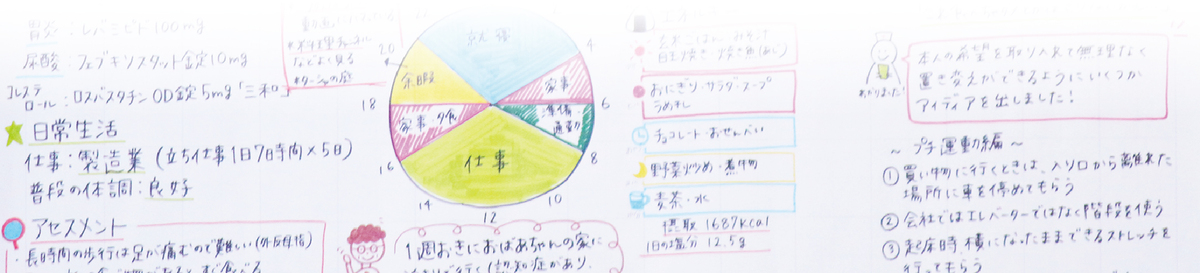 胃炎：レバミピド100mg
尿酸：フェブキソスタット錠10mg
コレステロール：ロスバスタチンOD錠5mg「三和」
日常生活
仕事：製造業（立ち仕事1日7時間×5日）
普段の体調：良好
アセスメント
・長時間の歩行は足が痛むので難しい（外反母指）
などよく見る
20
18
16
14
12
10
8
6
4
就寝
余暇
家事
準備・通勤
仕事
家事・夕食
1週おきにおばあちゃんの家に
おにぎり・サラダ・スープ
うめぼし
チョコレート・おせんべい
野菜炒め・煮物
麦茶・水
摂取 1687kcal
1日の塩分 12.5g
本人の希望を取り入れて無理なく
置き変えができるようにいくつか
アイディアを出しました！
～プチ運動編～
①買い物に行くときは、入り口から離れた
場所に車を停めてもらう
②会社ではエレベーターではなく階段を使う
③起床時横になったままできるストレッチを
行ってもらう